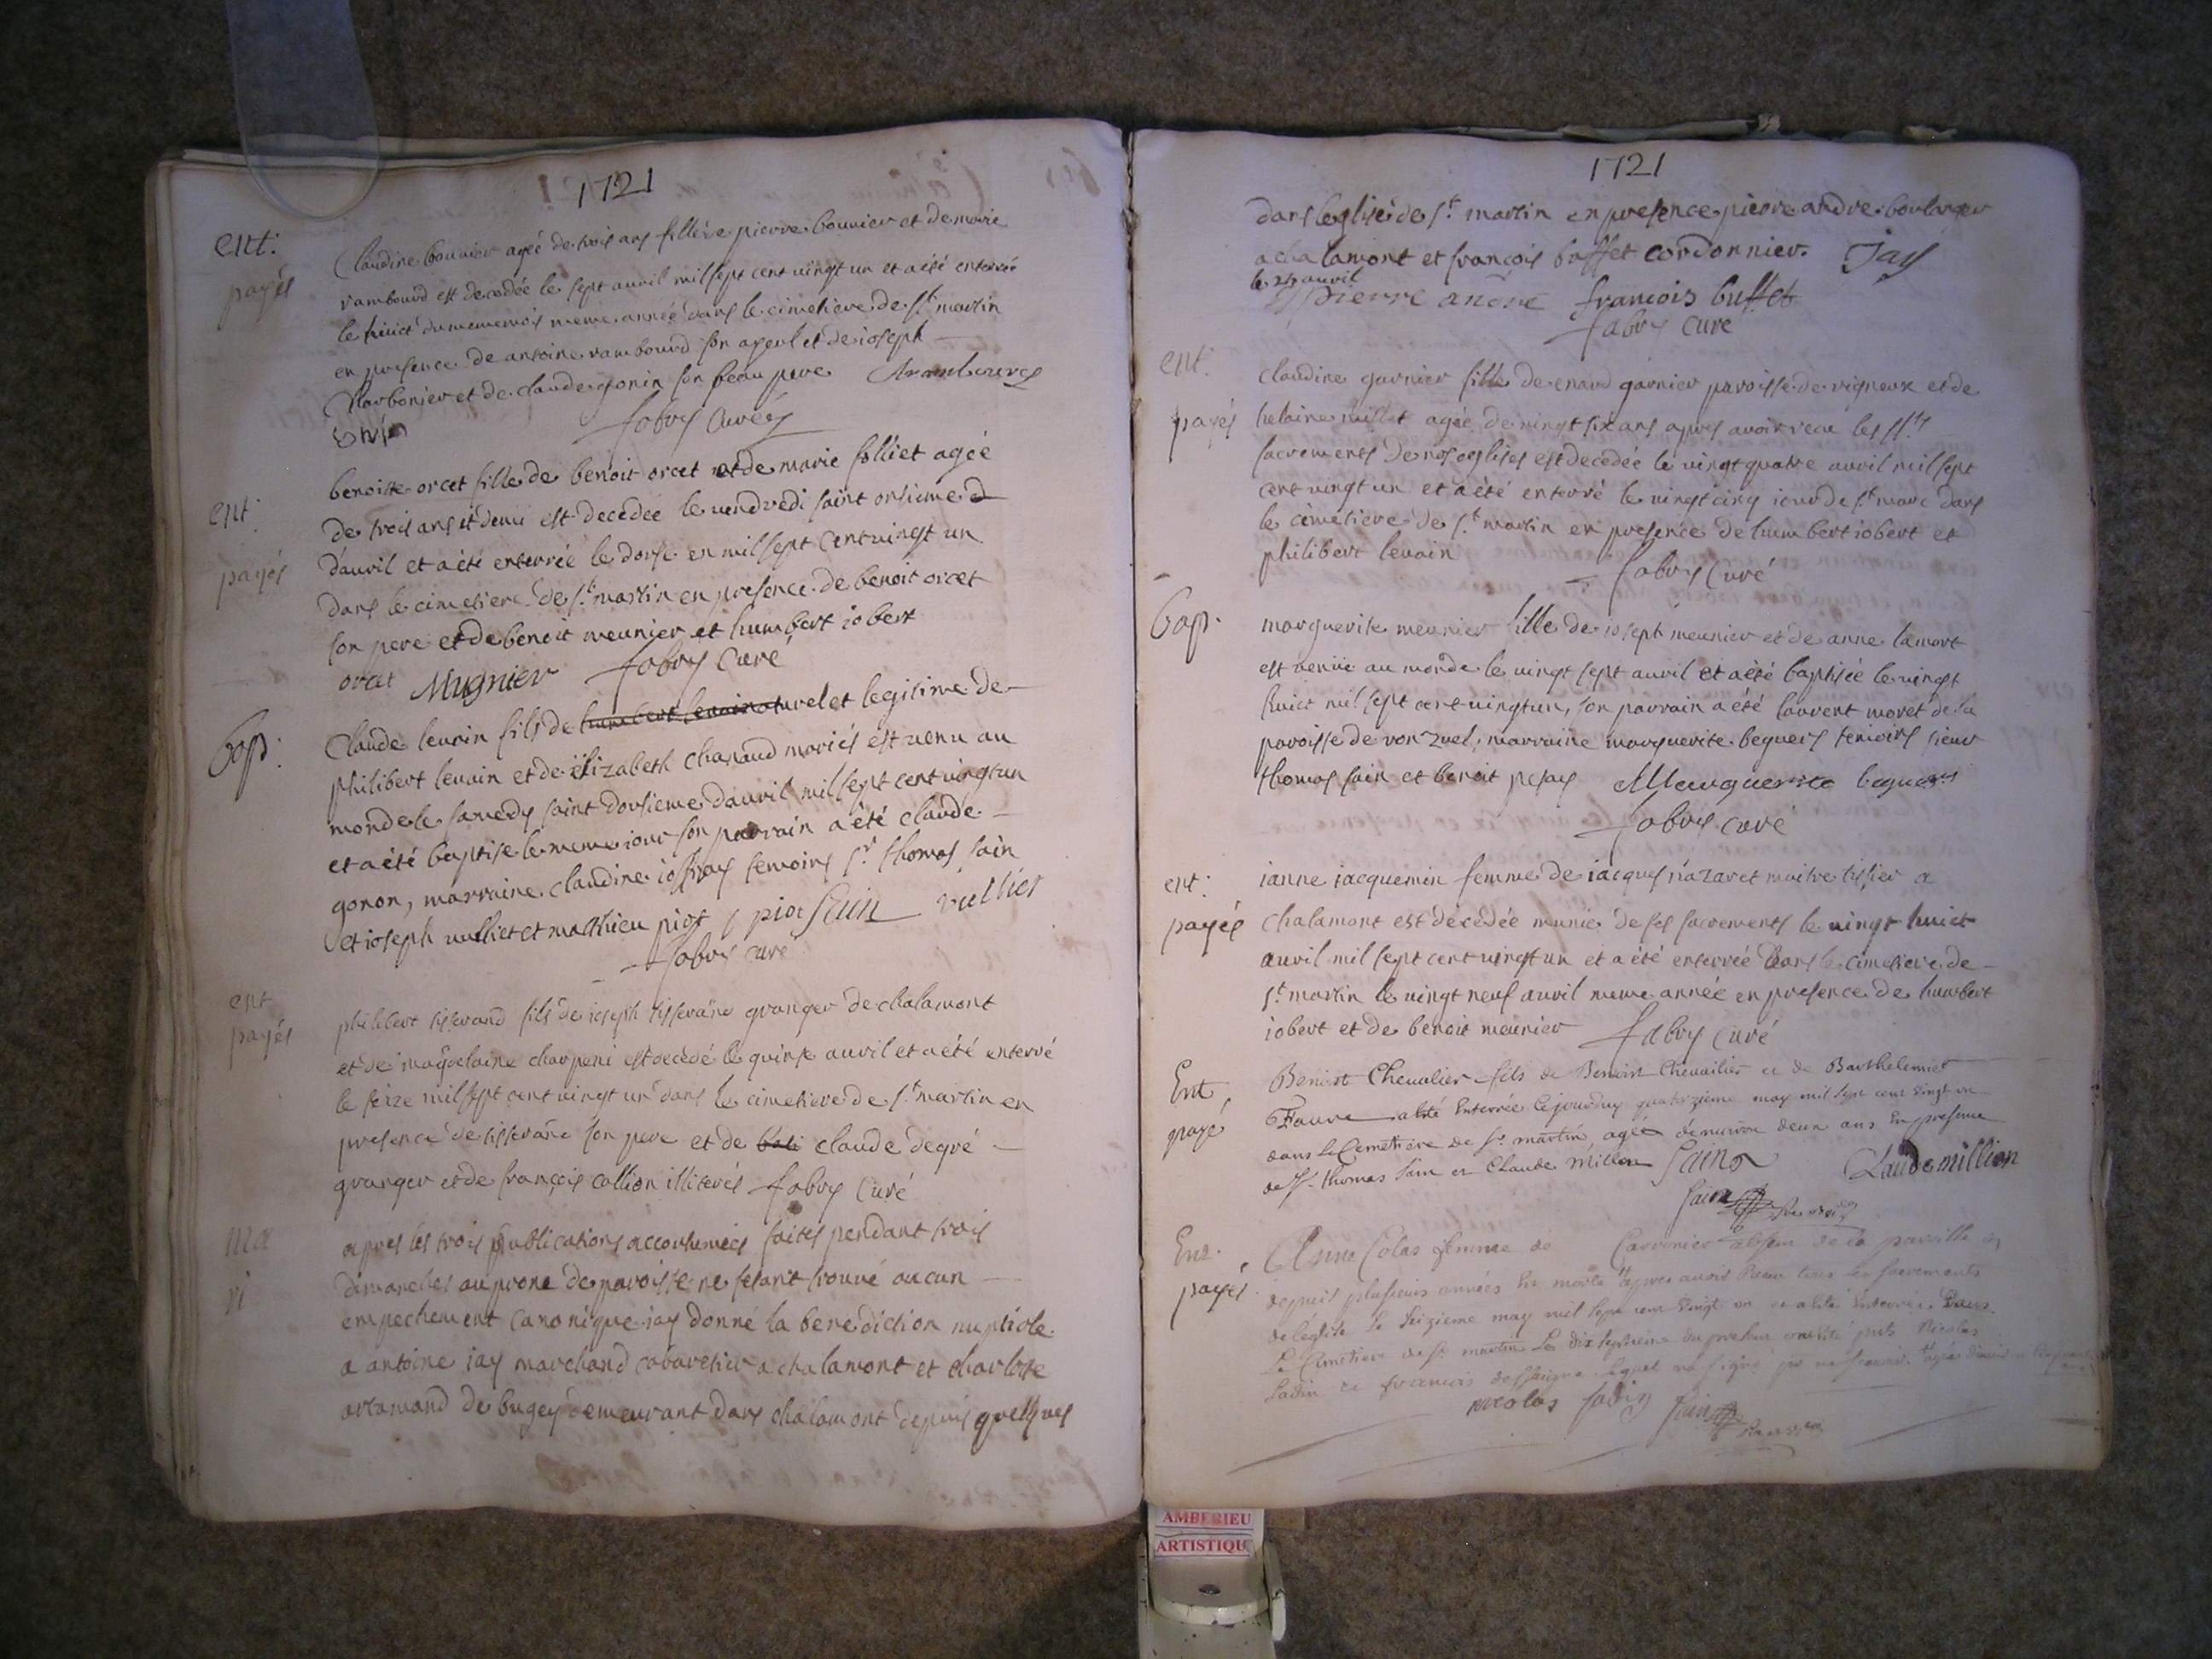 1721
ent:
payés
Claudine bouvier agéé de trois ans fille de pierre bouvier et de marie
rambourd est decedée le sept avril mil sept cent vingt un et a été enterrée
le huict du meme mois meme année dans le cimetiere de st martin
en presence de antoine rambourd son ayeul et de ioseph
Charbonier et de claude gonin son beau pere
fabry curé
ent:
payés
benoitte orcet fille de benoit orcet et de marie folliet agée
de trois ans et demi est decedée le vendredi saint onsieme d
d'avril et a été enterrée le douse en mil sept cent vingt un
dans le cimetiere de st martin en presence de benoit orcet
son pere et de benoit meunier et humbert iobert
orcet Mugnier fabry curé
bap:
Claude levain fils de humbert levain naturel et legitime de
philibert levain et de elizabeth chanaud mariés est venu au
monde le samedy saint dousieme d'avril mil sept cent vingt un
et a été baptisé le meme iour son parrain a été claude
gonon, marraine claudine ioffray temoins sr thomas sain
et ioseph vulliet et matthieu piot piot Sain vulliet
fabry curé
ent
payés
philibert tisserand fils de ioseph tisserand granger de chalamont
et de magdelaine charpeni est decedé le quinse avril et a été enterré
le seize mil sept cent vingt un dans le cimetiere de st martin en
presence de tisserand son pere et de claude degré
granger et de françois collion illiterés fabry curé
ma
ri
apres les trois publications accoutumeés faites pendant trois
dimanches au prone de paroisse ne setant trouvé aucun
empechement canonique iay donné la benediction nuptiale
a antoine iay marchand cabaretier a chalamont et charlotte
artamand de bugey demeurant dans chalamont depuis quelques
1721
dans leglise de st martin en presence pierre andre boulanger
a chalamont et francois buffet cordonnier. Jay
le avril
pierre andré francois buffet
fabry curé
ent:
payés
claudine garnier fille de enard garnier paroisse de vigneux et de
helaine millet agée de vingt six ans apres avoir receu les sts
sacrements de nos eglises est decedée le vingt quatre avril mil sept
cent vingt un et a été enterré le vingt cinq iour de st marc dans
le cimetiere de st martin en presence de humbert iobert et
philibert levain fabry curé
bap.
marguerite meunier fille de ioseph meunier et de anne lamort
est venüe au monde le vingt sept avril et a été baptisée le vingt
huict mil sept cent vingt un, son parrain a été laurent moret de la
paroisse de ronzuel, marraine marguerite beguers temoins sieur
thomas sain et benoit Marguerite
fabry curé
ent:
payés
ianne iacquemin femme de iacques nazaret maitre tissier a
chalamont est décedée munie de ses sacrements le vingt huict
avril mil sept cent vingt un et a été enterrée dans le cimetiere de
st martin le vingt neuf avril meme année en presence de humbert
iobert et de benoit meunier fabry curé
Ent,
payé
Benoist Chevalier fils de Benoist Chevallier et de Barthelemiet
Favre a esté Enterrée ce jourdhuy quatorzieme may mil sept cent vingt un
dans le Cemetiere de st martin, agée denviron deux ans En presence
de sr thomas Sain et Claude Millon Sain Claude million
Sain
Ent.
payés
Anne Colas femme de Carronier absent de la paroisse
depuis plusieurs années Est morte apres avoir Receu tous les sacrements
de leglise le seizieme may mil sept cent vingt un et a esté Enterrée dans
le Cimetiere de st martin le dix septieme
Sadin et francois
nicolas Sadin Sain
AMBERIEU
ARTISTIQU